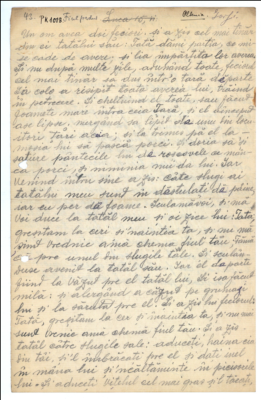 Un om avea doi feciori. Și a zis cel mai tînăr
din ei tatălui său: Tată dămi partea, ce mi
se cade de avere. și lia împărțitu lor averea
Și nu după multe zile, adunînd toate, feciorul
cel mai tînăr să dus într-o țară departe
și a colo a risipit toată averea lui, trăind
în petrecere. Și cheltuind el toate, sau făcut
foamete mare întra ceia țară, și el începuse
a se lipsi. mergînd sa lipit de unu din locui
torii Țări aceia; și la trimes pă el la
moșia lui să pască porci. Și doria să-și
sature pîntecile lui de roșcovele ce mîncau
porci, și nimenia nui da lui. Iar
venind întru sine a zis: cîte slugi ai
tatălui meu sunt în destulați de pîine,
iar eu per de foame. Sculamăvoi, și mă
voi duce la tatăl meu și oi zice lui: Tată,
greșitam la ceri și naintea ta, și nu mai
sînt vrednic amă chema fiul tău: fămă
pe unul din slugile tale. Și sculîn
duse avenit la tatăl său. Iar el departe
fiind la văzut pre el tatăl lui, și ia făcut
milă; și alergând a căzut pe grumazii
lui și la sărutat pre el. Și a zis lui feciorul:
Tată, greșitam la cer și naintea ta, și nu mai
sunt vrenic amă chema fiul tău. Și a zis
tatăl către slugile sale: aduceți, haina cea
din tîi, și-l îmbrăcați pre el și dați inel
în mâna lui și încălțăminte în picioarele
lui. Și aduceți vițelul cel mai gras și-l tăiați,